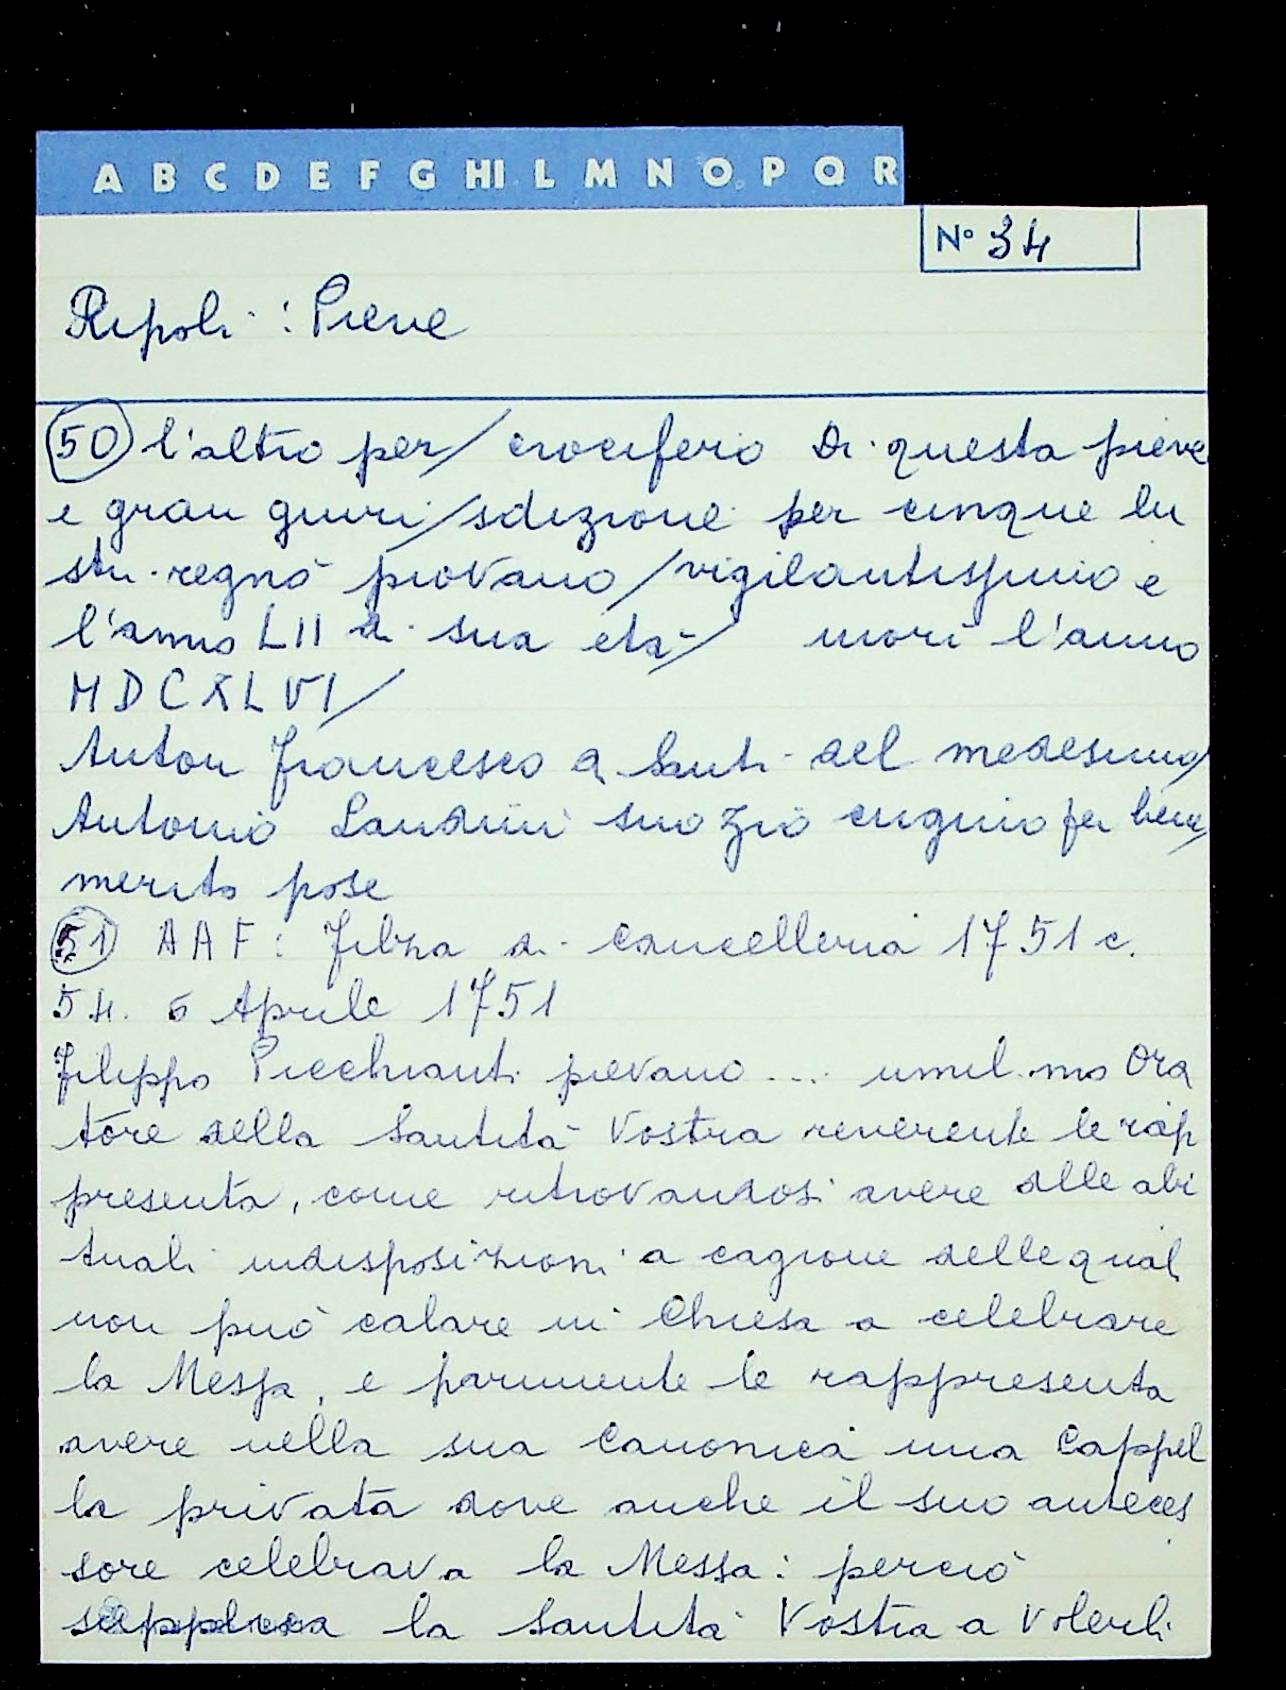 A B C D E F G HI L M N O P Q R
N° 34
Ripoli: Pieve
50 l'altro per/ crocifero di questa pieve
e gran giuri/sdizione per cinque lu
stri regnò piovano/vigilantissimo e
l'anno LII di sua età/ morì l'anno
MDCXLVI/
Anton Francesco di Santi del medesimo/
Antonio Landini suo zio cugino per bene/
merito pose
51 AAF: Filza di cancelleria 1751 c.
54. 6 Aprile 1751
Filippo Picchianti pievano ... umil.mo Ora
tore della Santità Vostra reverente le rap
presenta, come ritrovandosi avere delle abi
tuali indisposizioni a cagione delle quali
non può calare in Chiesa a celebrare
la Messa, e parimente le rappresenta
avere nella sua Canonica una Cappel
la privata dove anche il suo anteces
sore celebrava la Messa: perciò
supplica la Santità Vostra a volerli